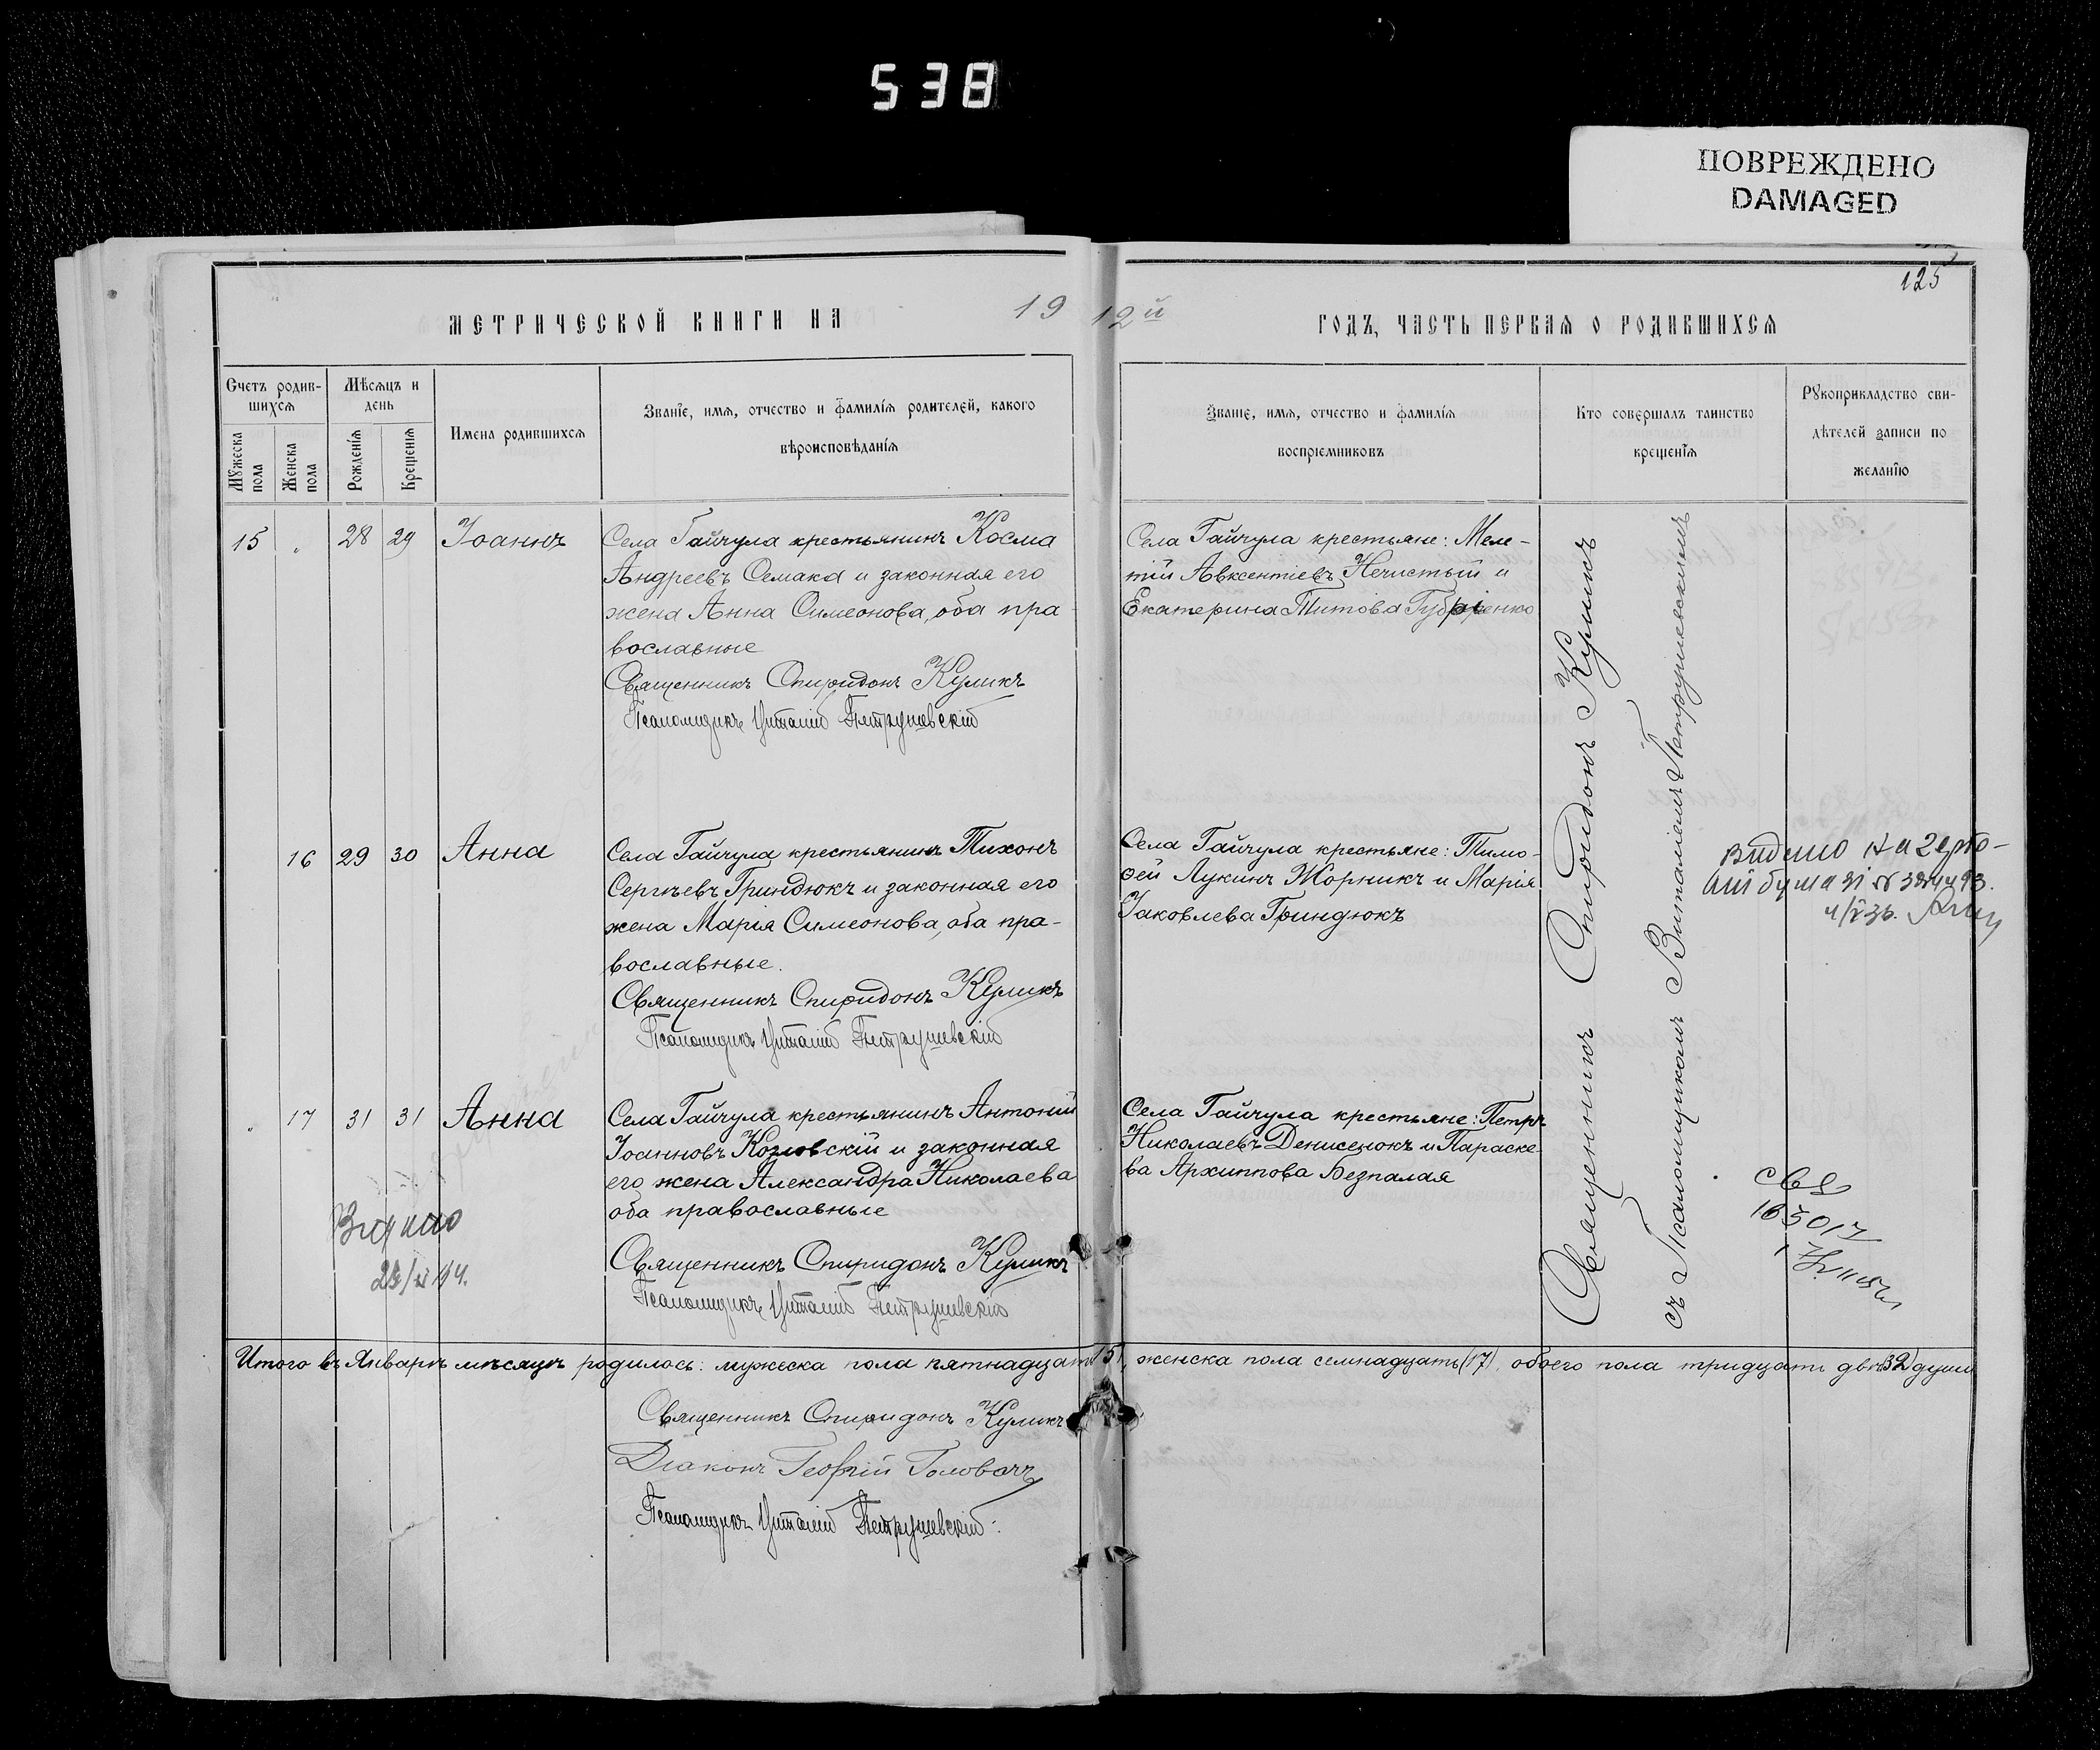 538
ПОВРЕЖДЕНО
DAMAGED
125
МЕТРИЧЕСКОЙ КНИГИ НА 19
12й ГОДЪ, ЧАСТЬ ПЕРВАЯ О РОДИВШИХСЯ
Счетъ родив-
шихся
Мужеска
пола
Женска
пола
Мѣсяцъ и
день
Рожденія
Крещенія
Имена родившихся
Званіе, имя, отчество и фамилія родителей, какого
вѣроисповѣданія
Званіе, имя, отчество и фамилія
воспріемниковъ
Кто совершалъ таинство
крещенія
Рукоприкладство сви-
дѣтелей записи по
желанію
15 28 29 Іоаннъ
Села Гайчула крестьянинъ Косма
Андреевъ Семака и законная его
жена Анна Симеонова, оба пра-
вославные
Священникъ Спиридонъ Куликъ
Псаломщикъ Виталій Петрушевскій
Села Гайчула крестьяне: Меле-
тій Авксентіевъ Нечистый и
Екатерина Титова
16 29 30 Анна
Села Гайчула крестьянинъ Тихонъ
Сергѣевъ Гриндюкъ и законная его
жена Марія Симеонова, оба пра-
вославные.
Священникъ Спиридонъ Куликъ
Псаломщикъ Виталій Петрушевскій
Села Гайчула крестьяне: Тимо-
фей Лукинъ Жорникъ и Марія
Іаковлева Гриндюкъ
17 31 31 Анна
Села Гайчула крестьянинъ Антоній
Іоанновъ Козловскій и законная
его жена Александра Николаева
оба православные
Священникъ Спиридонъ Куликъ
Псаломщикъ Виталій Петрушевскій
Села Гайчула крестьяне: Петръ
Николаевъ Денисенокъ и Параске-
ва Архиппова Безпалая
Священникъ Спиридонъ Куликъ
съ Псаломщикомъ Виталіемъ Петрушевскимъ
видано на гербо-
вій бумазі №
Видано
свд
165017
Итого въ Январѣ мѣсяцѣ родилось: мужеска пола пятнадцать (15), женска пола семнадцать (17), обоего пола тридцать двѣ (32) души
Священникъ Спиридонъ Куликъ
Діаконъ Георгій Головачъ
Псаломщикъ Виталій Петрушевскій